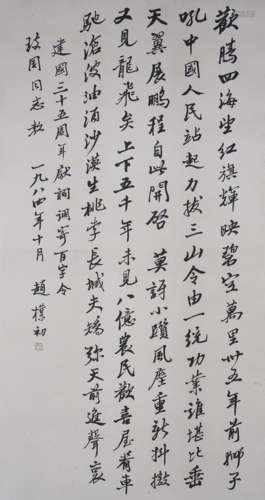 歡騰四海望紅旗輝映碧空萬里卅五年前獅子
吼中國人民站起力拔三山令由一統功業誰堪比垂
天翼展鵬程自此開啓 莫訝小躓風塵重新抖擻
又見龍飛矣上下五千年未見八億農民歡喜屋車
馳滄波油湧沙漠生桃李長城夭矯弥天前進聲裏
建國三十五周年獻詞調寄百字令
周同志教 一九八四年十月 趙樸初